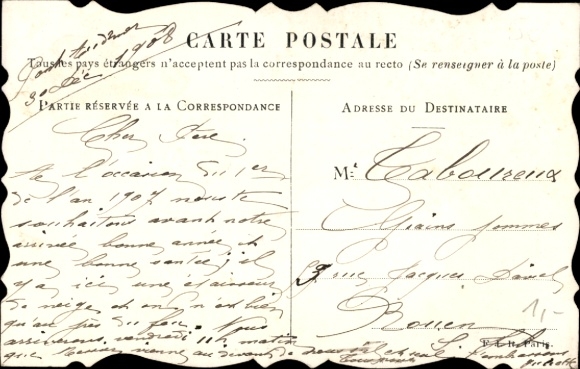 Pont Audemer
30 Déc 1906
CARTE POSTALE
Tous les pays étrangers n'acceptent pas la correspondance au recto (Se renseigner à la poste)
PARTIE RÉSERVÉE A LA CORRESPONDANCE
Cher
A l'occasion du 1er
de l'an 1907 nous te
souhaitons avant notre
arrivée bonne année et
une bonne santé; il
y a ici une épaisseur
de neige et on n'est bien
qu'au près du feu. Nous
arriverons vendredi 11h matin
que vienne au devant de
ADRESSE DU DESTINATAIRE
Mr Taboureux
Grains
3 rue Jacques
Rouen
1,-
E. L. D. Paris.